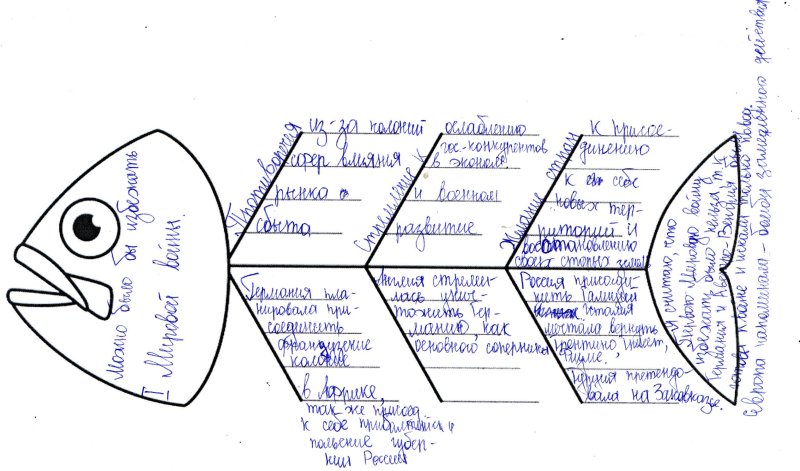 Можно было бы избежать
I Мировой войны.
Противоречия
из-за колоний
сфер влияния
рынко
сбыта
Стремление к
ослаблению
гос-конкурентов
в эконом.
и военном
развитие
Желание стран
к присое-
динению
к себе
новых тер-
риторий и
восстановлению
своих старых земель
Германия пла-
нировала при-
соединить
французские
колоние
в Африке,
так же присоед.
к себе прибалтийск и
польские губер-
нии России
Англия стреми-
лась унич-
тожить Гер-
манию, как
основного соперника
Россия присоеди-
нить Галицию
Италия
мечтала вернуть
трентино триест,
Фиуме.
Турция претендо-
вала на Закавказье.
Я считаю, что
Первую Мировую войну
избежать было нельзя т.к
Германия и Австро-Венгрия были
готовы к войне и искали только повод.
Европа напоминала - бомбу замедленного действия